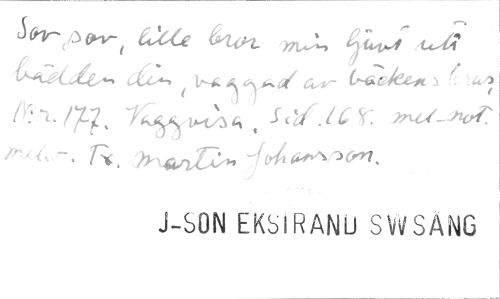 Sov, sov, lille bror min ljuvt uti
bädden din, vaggad av bäckens brus,
N:r. 177. Vaggvisa. Sid. 168. mel-not.
Tx. Martin Johansson.
J-SON EKSTRAND SW SÅNG